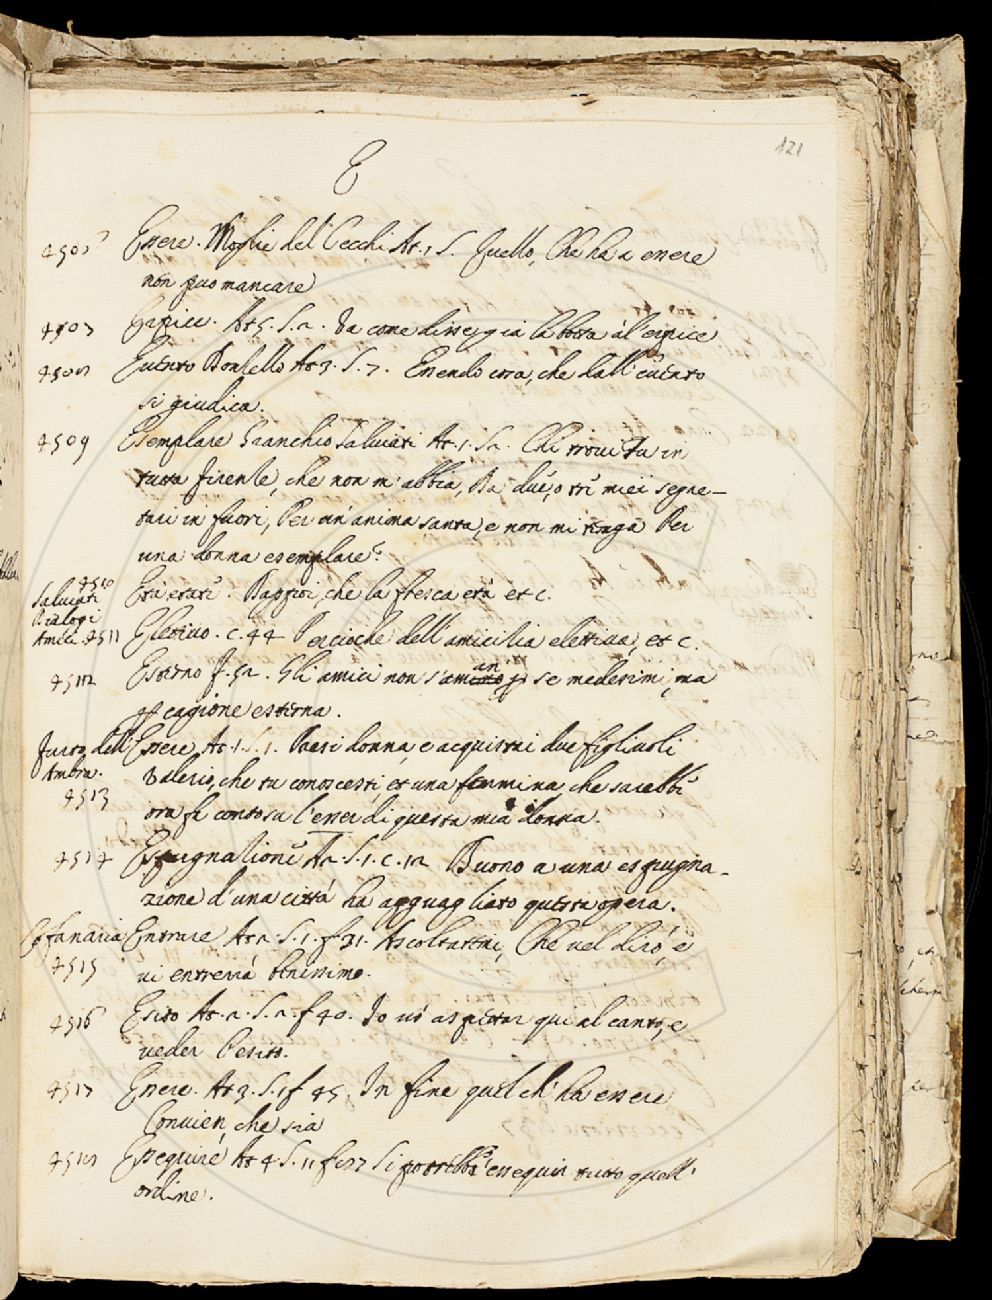 121
E
4506 Essere. Moglie del Cecchi At. 1 S. Quello, Che ha a essere
non può mancare
4507 Erpice. At 5. S. 2. Va come disse già la botta al erpice
4508 Evento Donzello At 3. S. 7. Essendo cosa, che dall'evento
si giudica.
4509 Esemplare Granchio Salviati At. 1. S 2. Chi trovi tu in
tutta firenze, che non m'abbia, Da due, o tre miei segre-
tari in fuori, Per un'anima santa, e non mi tenga Per
una donna esemplare?
4510 Età etati. Baggioi, che la fresca età et c.
Salviati
Dialogi
Amici. 4511 Elettivo. c. 44 Percioche dell'amicizia elettiva, et c.
4512 Esterno f. 52. Gli amici non s'amano p se medesimi, ma
p cagione esterna.
furto dell' Essere At. 1. S. 1. Presi donna, e acquistai due figliuoli
Ambra. Valerio, che tu conoscesti, et una femmina che sarebbe
4513 ora fe conto su l'esser di questa mia donna.
4514 Espugnatione A 2. S. 1. c. 12 Buono a una espugna-
zione d'una città ha agguagliato questa opera.
Cofanaria Entrare At 2. S. 1. f 31. Ascoltatemi, Che vel dirò, e
4515 vi enterrà benissimo.
4516 Esito At. 2. S. 2. f 40. Io vo' aspettar qui al canto, e
veder l'esito.
4517 Essere. At 3. S. 1 f 45. In fine quel ch'ha essere
Convien, che sia
4518 Esseguire At 4 S. 11 f 87 Si potrebbe esseguir tutto quell'
ordine.